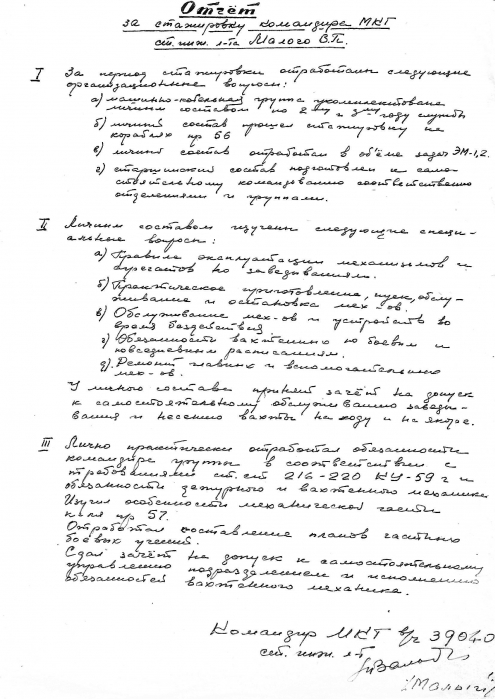 Отчёт
за стажировку командира МКГ
ст. инж. л-та Малого В.П.
I За период стажировки отработаны следующие
организационные вопросы:
а) машинно-котельная группа укомплектована
личным составом по 2му и 3му году службы
б) личный состав прошел стажировку на
кораблях пр 56
в) личный состав отработан в объёме задач ЭМ-1,2.
г) старшинский состав подготовлен к само-
стоятельному командованию соответственно
отделениями и группами.
II Личным составом изучены следующие специ-
альные вопросы:
а) Правила эксплуатации механизмов и
агрегатов по заведываниям.
б) Практическое приготовление, пуск, обслу-
живание и остановка мех-ов.
в) Обслуживание мех-ов и устройств во
время бездействия
г) Обязанности вахтенного по боевым и
повседневным расписаниям.
д) Ремонт главных и вспомогательных
мех-ов.
У личного состава принят зачёт на допуск
к самостоятельному обслуживанию заведы-
вания и несению вахты на ходу и на якоре.
III Лично практически отработал обязанности
командира группы в соответствии с
требованиями ст. ст 216-220 КУ-59 г и
обязанности дежурного и вахтенного механика
Изучил особенности механической части
к-ля пр 57.
Отработал составление планов частных
боевых учений.
Сдал зачёт на допуск к самостоятельному
управлению подразделением и исполнению
обязанностей вахтенного механика.
Командир МКГ в/ч 39040
ст. инж. л-т